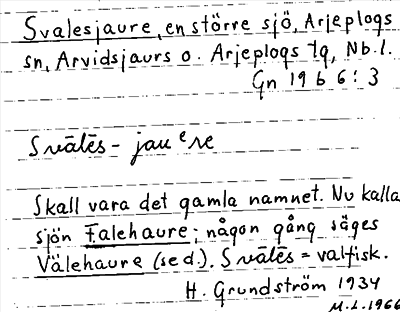 Svalesjaure, en större sjö, Arjeplogs
sn, Arvidsjaurs o. Arjeplogs tg, Nb.l.
Gn 19 b 6:3
Svālēs-jauᵉre
Skall vara det gamla namnet. Nu kalla
sjön Falehaure; någon gång säges
Välehaure (se d.). Svālēs = valfisk.
H. Grundström 1934
M.L. 1966